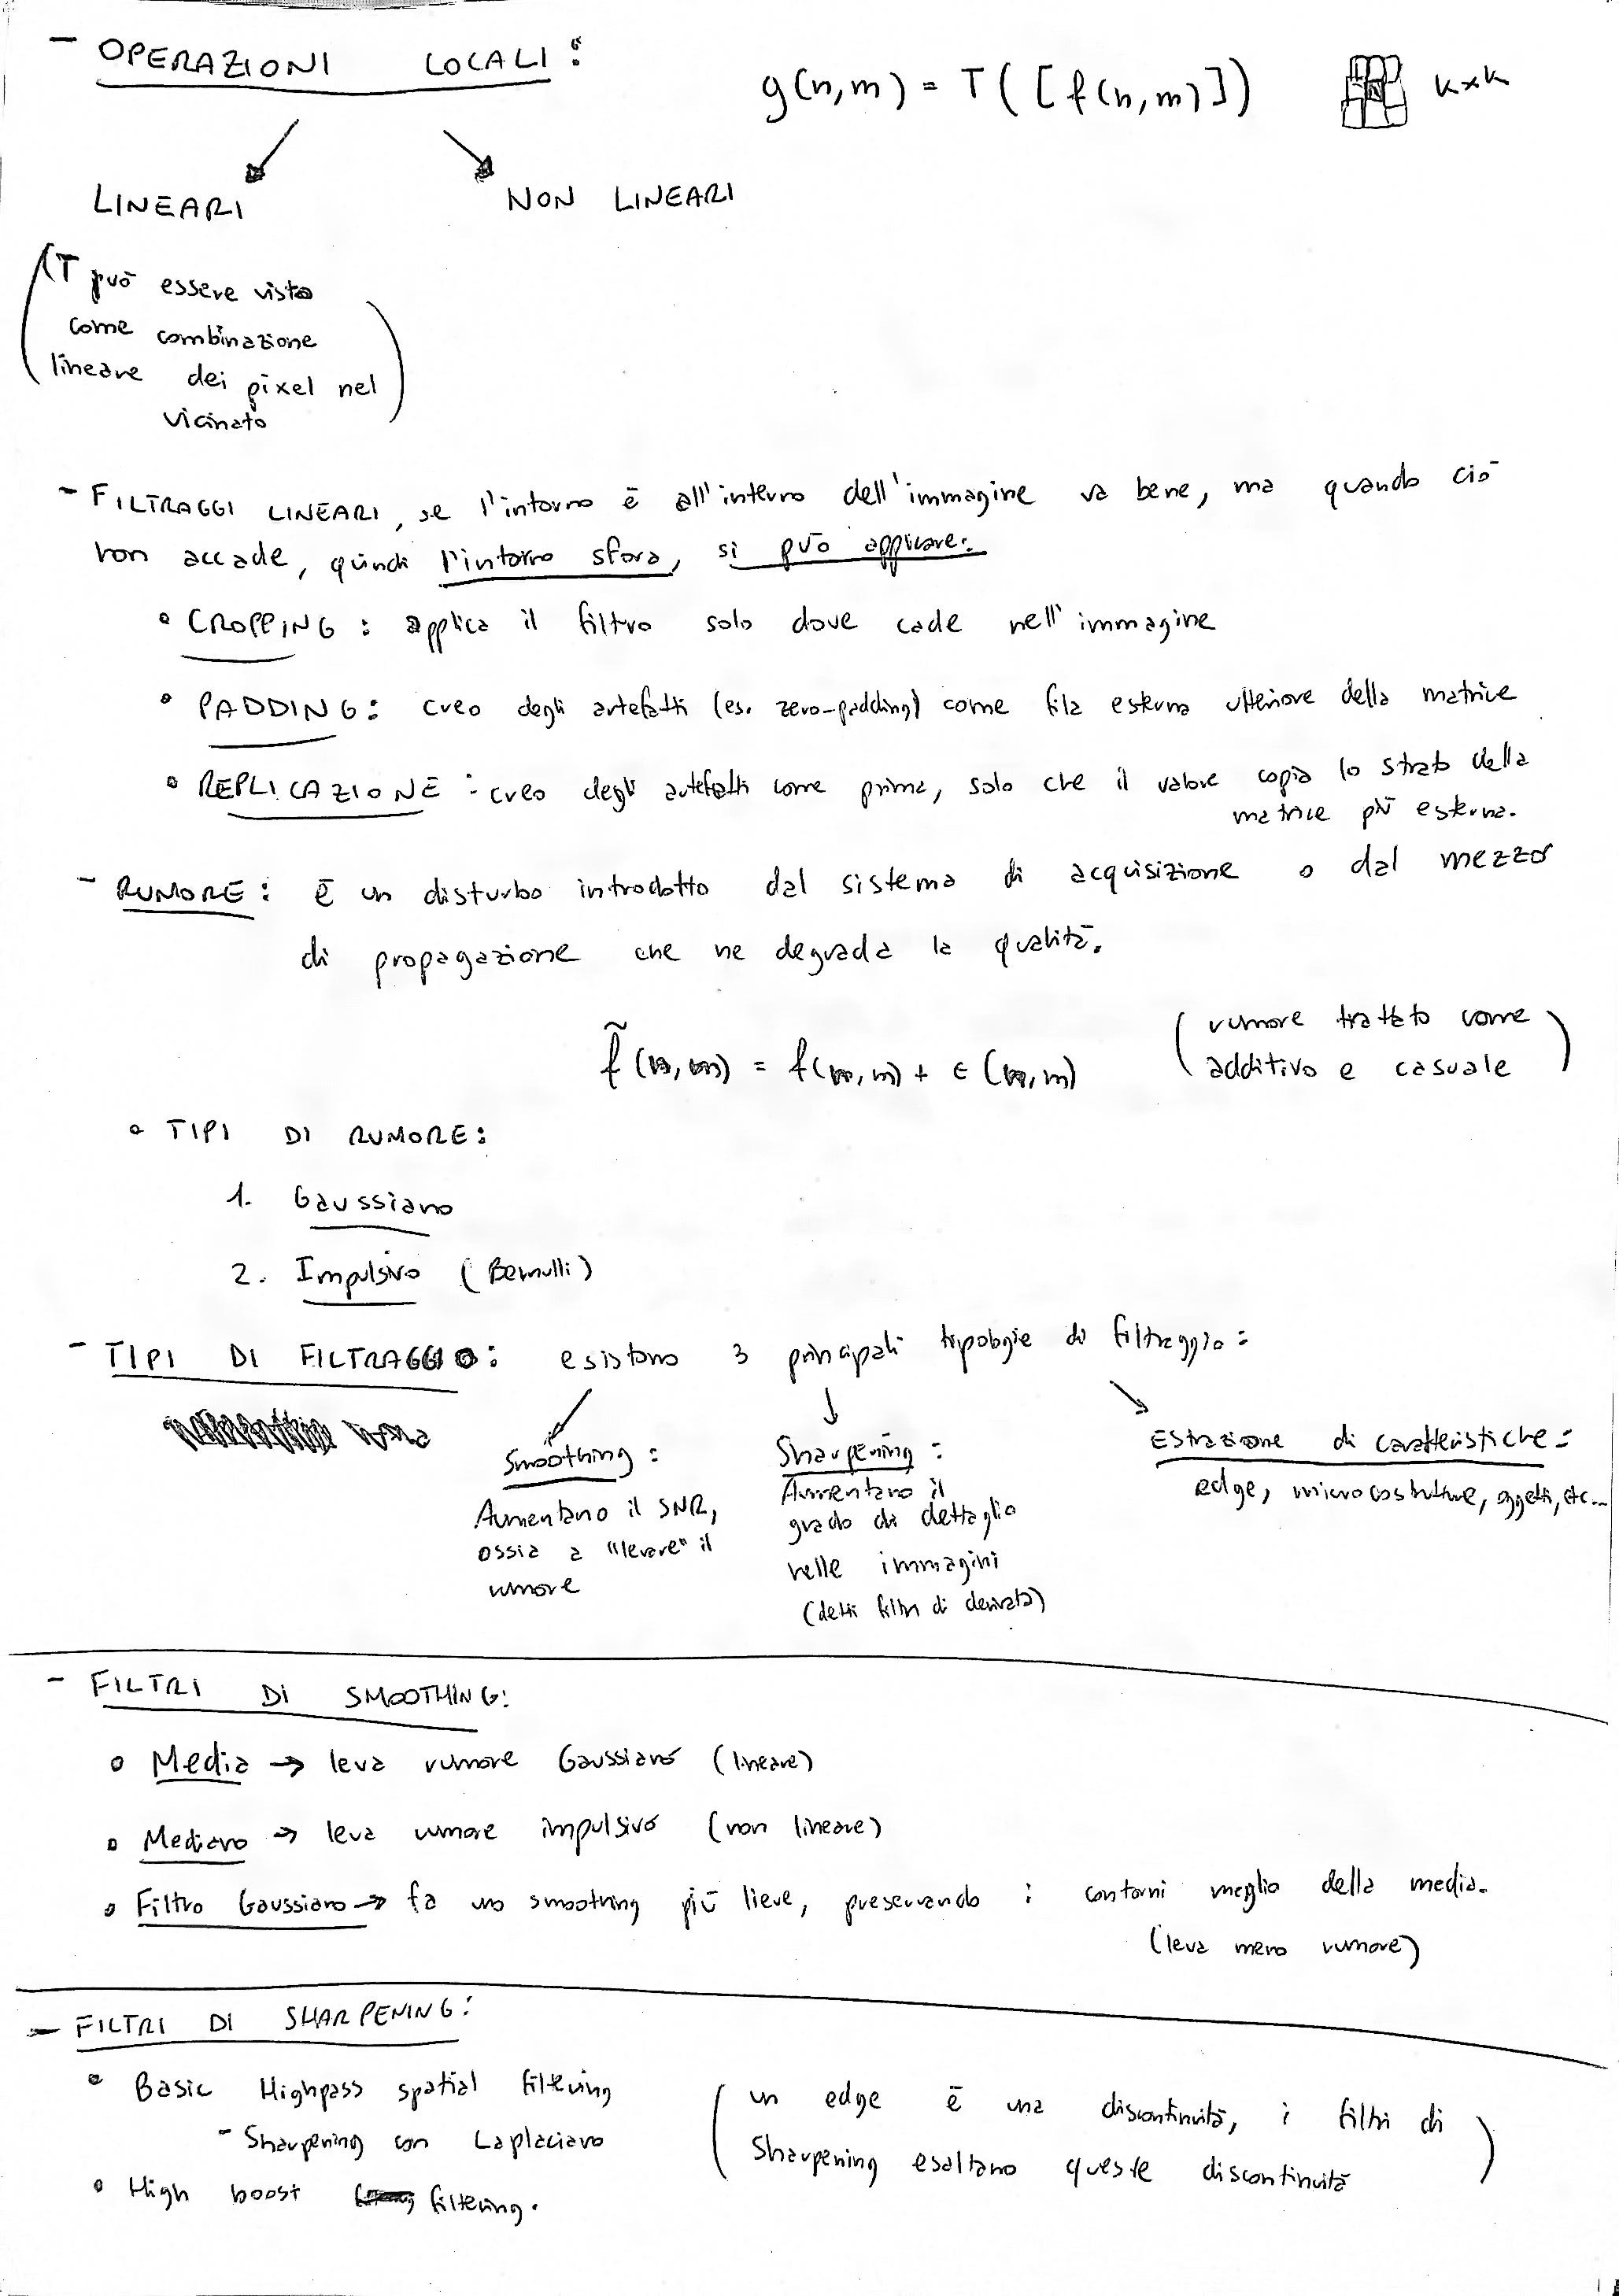 - OPERAZIONI LOCALI:
g(n,m) = T([f(n,m)]) K×K
LINEARI NON LINEARI
(T può essere vista
come combinazione
lineare dei pixel nel
vicinato)
- FILTRAGGI LINEARI, se l'intorno è all'interno dell'immagine va bene, ma quando ciò
non accade, quindi l'intorno sfora, si può applicare:
• CROPPING: applica il filtro solo dove cade nell'immagine
• PADDING: creo degli artefatti (es. zero-padding) come fila esterna ulteriore della matrice
• REPLICAZIONE: creo degli artefatti come prima, solo che il valore copia lo strato della
matrice più esterna.
- RUMORE: è un disturbo introdotto dal sistema di acquisizione o dal mezzo
di propagazione che ne degrada la qualità.
f̃(n,m) = f(n,m) + ε(n,m) (rumore trattato come
additivo e casuale)
• TIPI DI RUMORE:
1. Gaussiano
2. Impulsivo (Bernulli)
- TIPI DI FILTRAGGIO: esistono 3 principali tipologie di filtraggio:
Smoothing:
Aumentano il SNR,
ossia a "levare" il
rumore
Sharpening:
Aumentano il
grado di dettaglio
nelle immagini
(detti filtri di derivata)
Estrazione di caratteristiche:
edge, microcostutture, oggetti, etc...
- FILTRI DI SMOOTHING:
• Media → leva rumore Gaussiano (lineare)
• Mediano → leva rumore impulsivo (non lineare)
• Filtro Gaussiano → fa uno smoothing più lieve, preservando i contorni meglio della media.
(leva meno rumore)
- FILTRI DI SHARPENING:
• Basic Highpass spatial filtering
- Sharpening con Laplaciano
• High boost filtering.
(un edge è una discontinuità, i filtri di
Sharpening esaltano queste discontinuità)